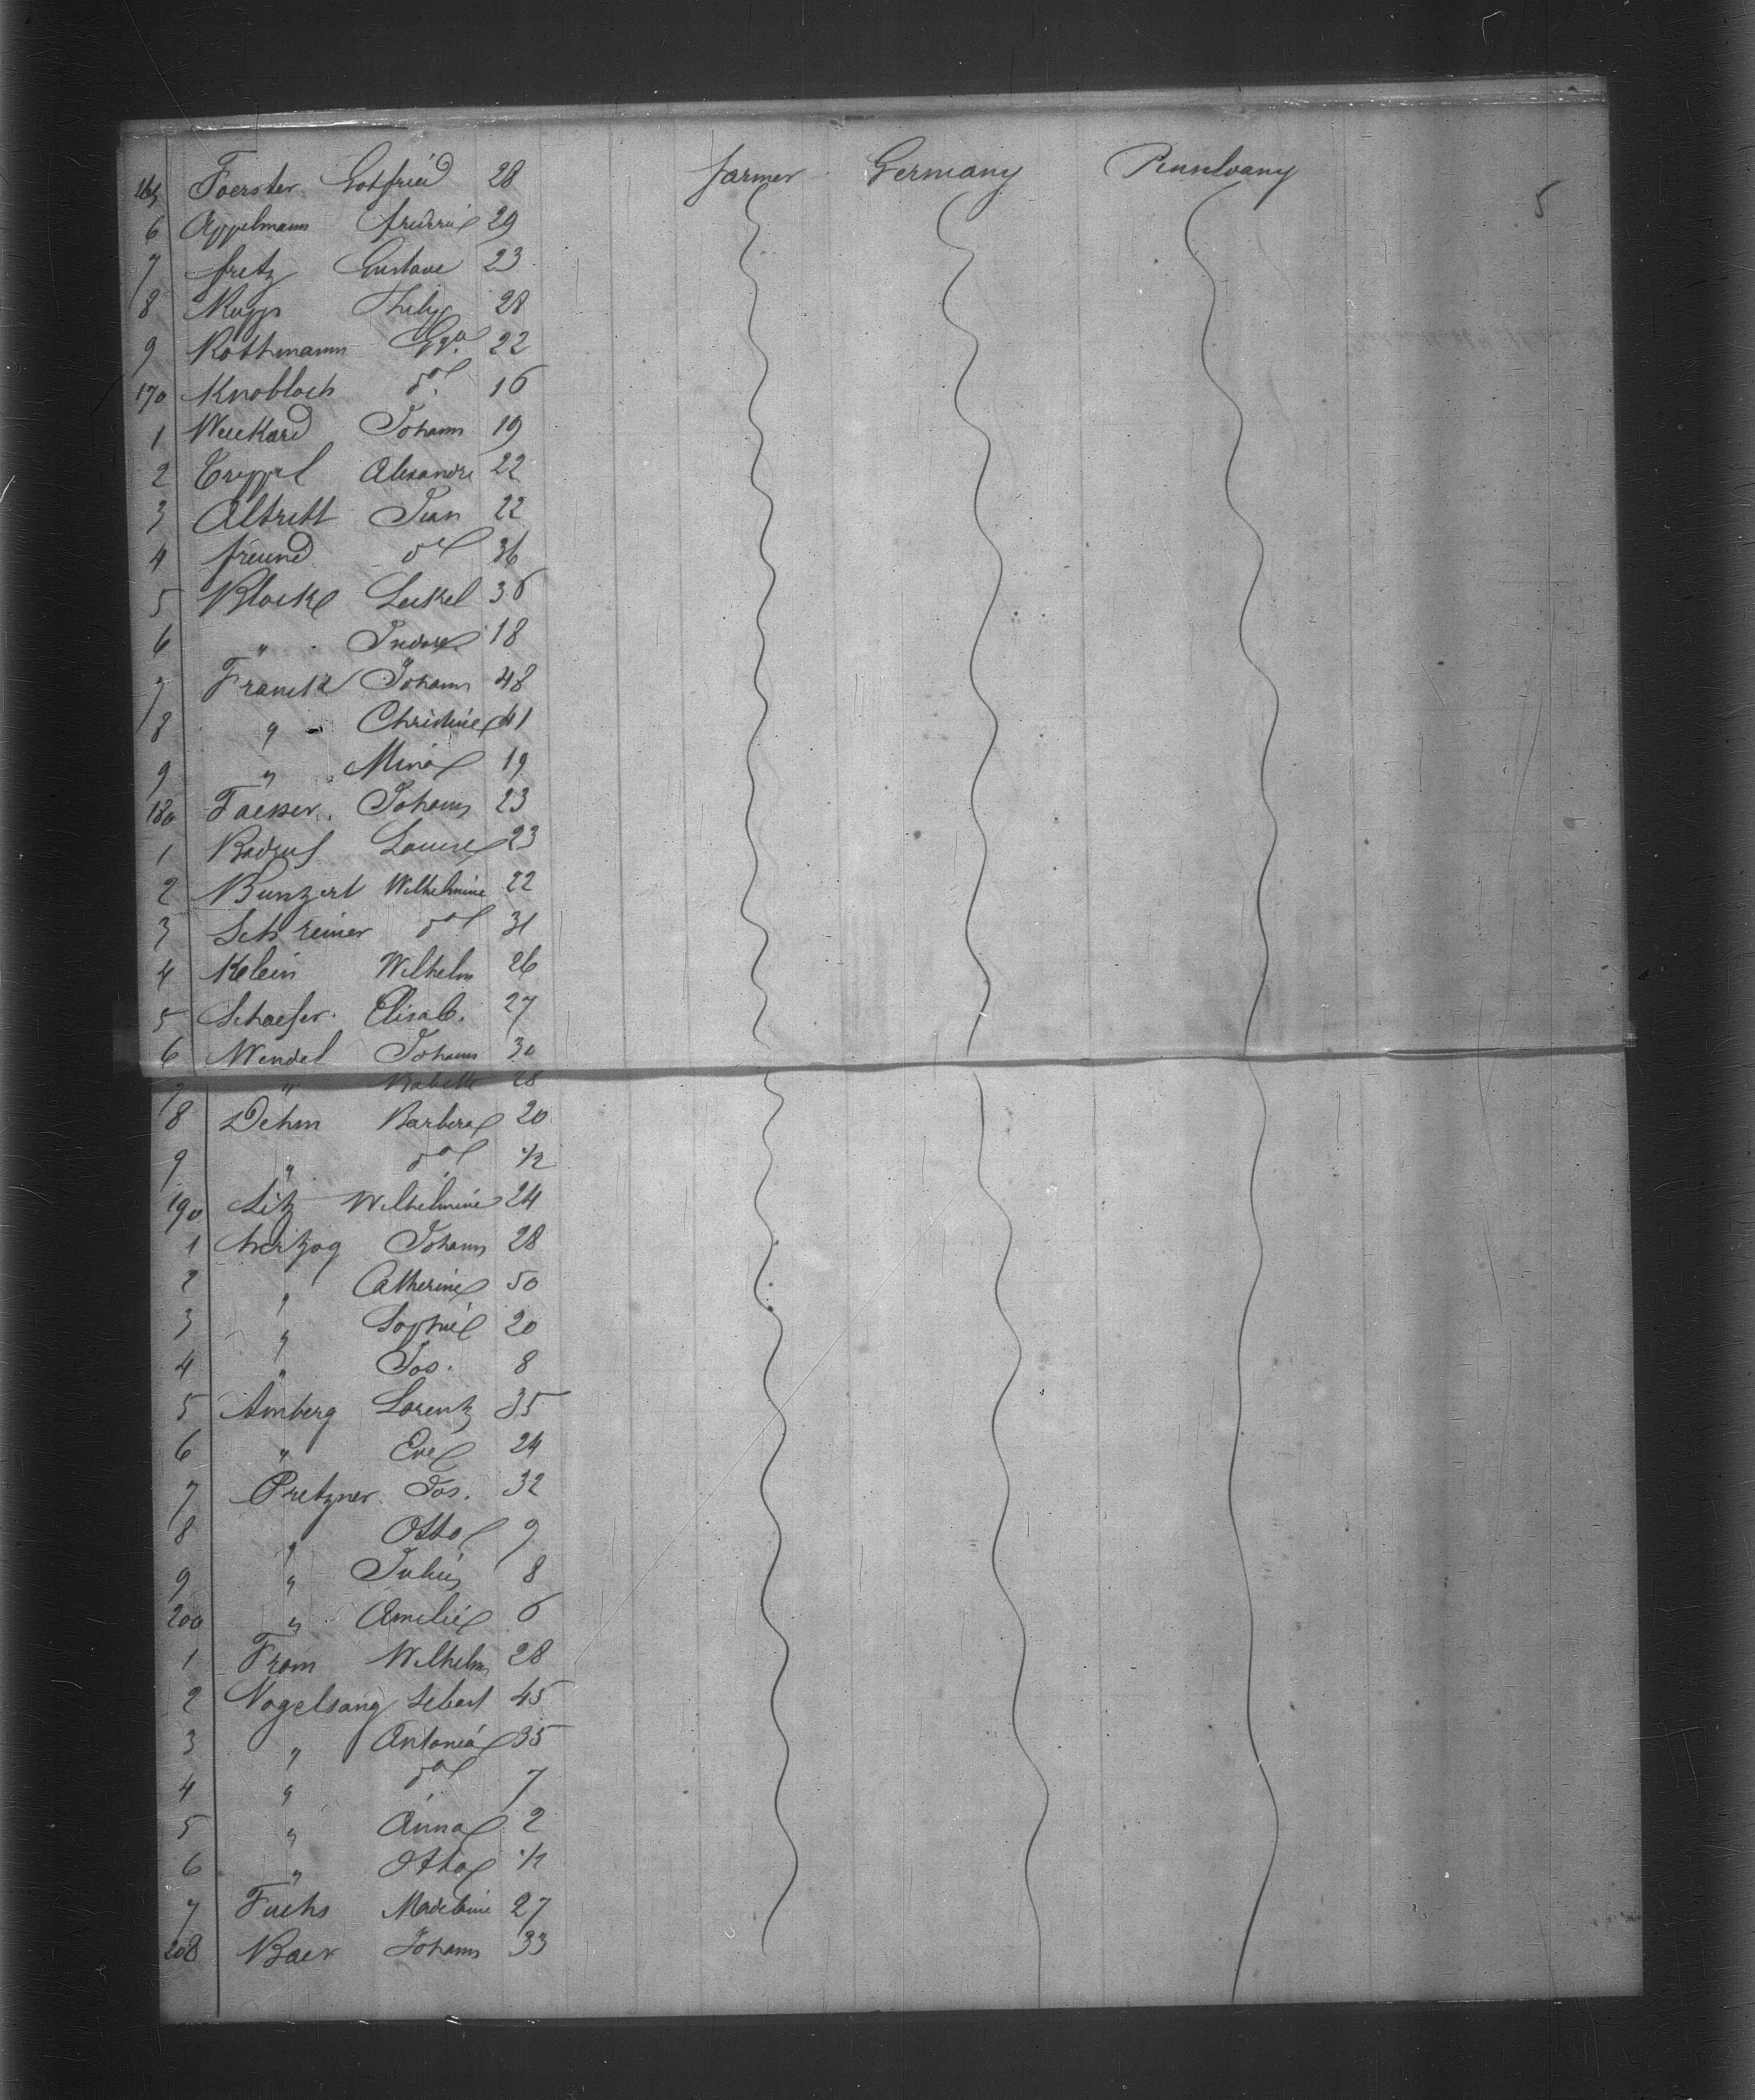 165 Foerster Gotfried 28 farmer Germany Pennselvany 5
6 Appelmann frederic 29
7 fretz Gustave 23
8 Kupp Philip 28
9 Rothmann 22
170 Knobloch do 16
1 Weickard Johann 19
2 Treppel Alexandre 22
3 Altrett Jean 22
4 freund do 36
5 Block 36
6 " Indore 18
7 Franck Johann 48
8 " Christine 41
9 " Mina 19
180 Faesser Johann 23
1 Louise 23
2 Bunzert Wilhelmine 22
3 Schreiner do 31
4 Klein Wilhelm 26
5 Schaefer Elisab. 27
6 Wendel Johann 30
7 " Babette 28
8 Dehm Barbera 20
9 " do 1/2
190 Litz Wilhelmine 24
1 hertzog Johann 28
2 " Catherine 50
3 " Sophie 20
4 " Jos. 8
5 Amberg Lorentz 35
6 " Eve 24
7 Pretzner Jos. 32
8 " Otto 9
9 " Julius 8
200 " Amelie 6
1 From Wilhelm 28
2 Vogelsang Sebast 45
3 " Antonia 35
4 " do 7
5 " Anna 2
6 " Otto 1/2
7 Fuchs Madelaine 27
208 Baer Johann 33